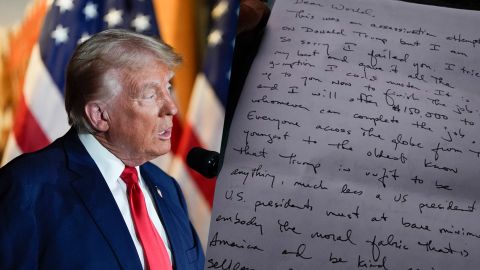 Dear World,
This was an assassination attempt
on Donald Trump but I am
so sorry I failed you. I tried
my best and gave it all the
gumption I could muster. It is
up to you now to finish the job
and I will offer $150,000 to
whomever can complete the job.
Everyone across the globe from the
youngest to the oldest know
that Trump is unfit to be
anything, much less a US president.
U.S. presidents must at bare minimum
embody the moral fabric that is
America and be kind